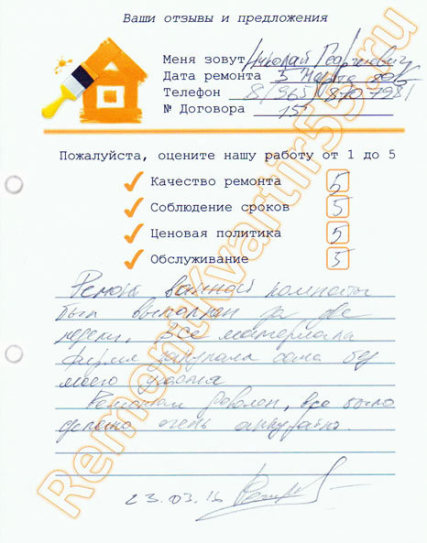 Ваши отзывы и предложения
Меня зовут Николай Георгиевич
Дата ремонта 5 Марта
Телефон 8(965)870-7981
№ Договора 15
Пожалуйста, оцените нашу работу от 1 до 5
Качество ремонта 5
Соблюдение сроков 5
Ценовая политика 5
Обслуживание 5
Ремонт ванной комнаты
был выполнен за две
недели. Все материала
фирма закупала сама без
моего участия
Ремонтом доволен, все было
сделано очень аккуратно.
23.03.16
RemontKvartir55.ru